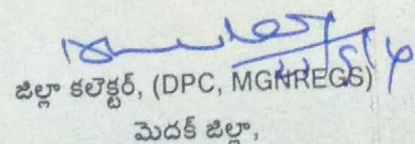 జిల్లా కలెక్టర్, (DPC, MGNREGS)
మెదక్ జిల్లా,